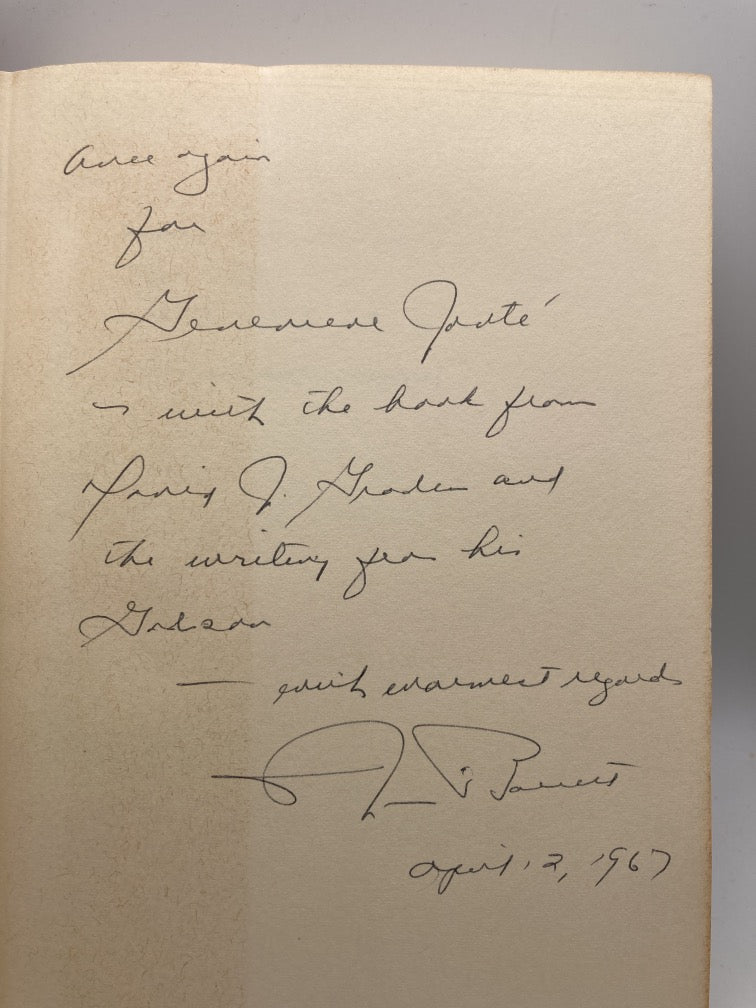 Once again
for
Genevieve Forté
— with the book from
David J. Graden and
the writing from his
Godson
— with warmest regards
Barrett
April 12, 1967